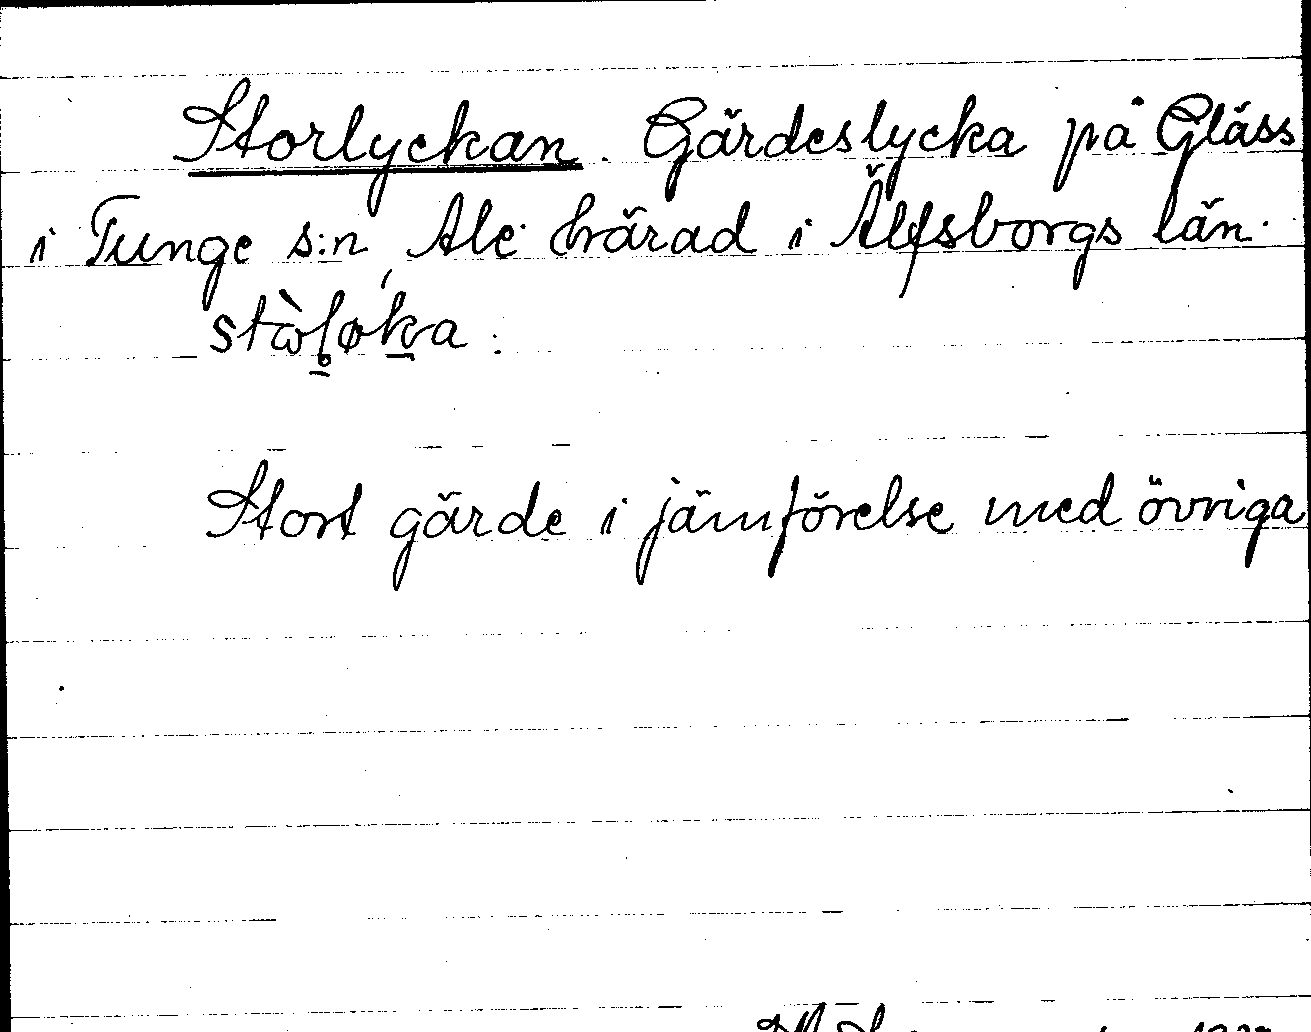 Storlyckan. Gärdeslycka på Gläss
i Tunge s:n, Ale härad i Älfsborgs län.
Stort gärde i jämförelse med övriga